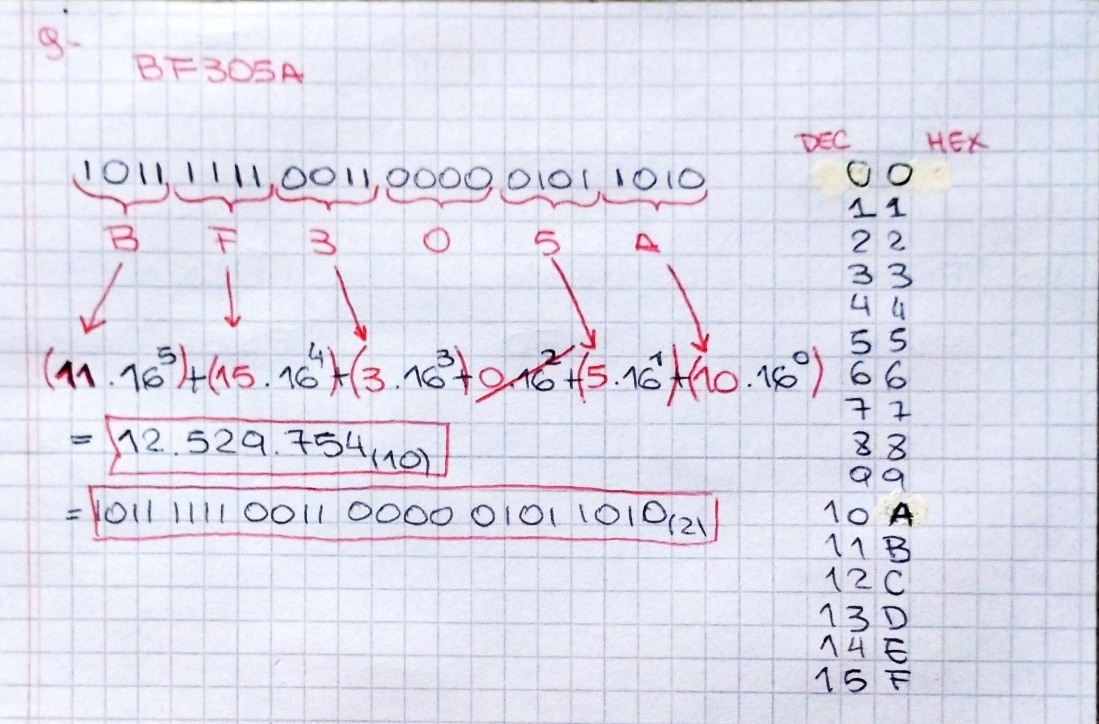 9-
BF305A
1011 1111 0011 0000 0101 1010
B F 3 0 5 A
(11.16⁵)+(15.16⁴)+(3.16³)+0.16²+(5.16¹)+(10.16⁰)
= 12.529.754(10)
= 1011 1111 0011 0000 0101 1010(2)
DEC HEX
0 0
1 1
2 2
3 3
4 4
5 5
6 6
7 7
8 8
9 9
10 A
11 B
12 C
13 D
14 E
15 F